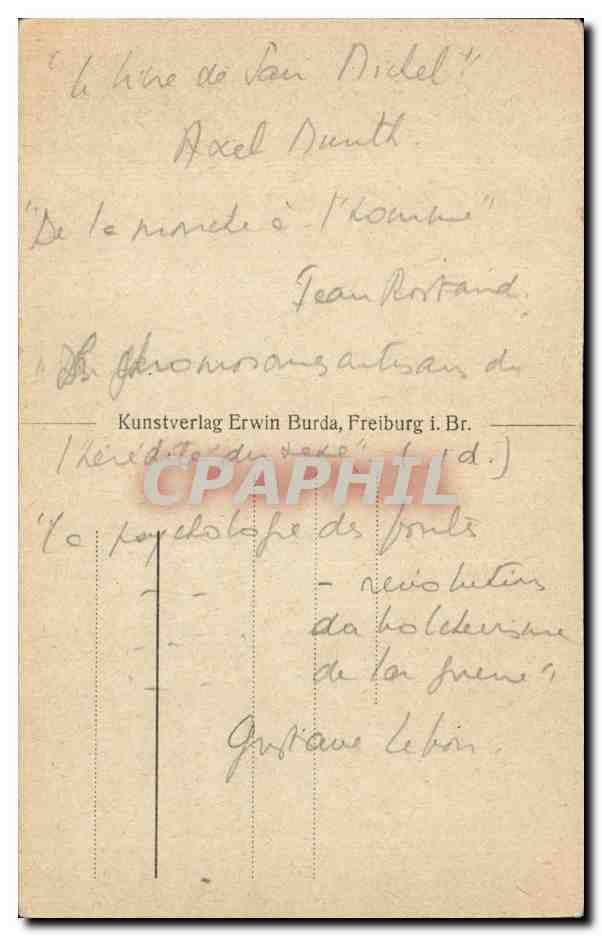 "Le livre de San Michel"
Axel Munth.
"De la mouche à l'homme"
Jean Rostand.
"Les chromosomes artisans de
Kunstverlag Erwin Burda, Freiburg i. Br.
l'hérédité du sexe" (id.)
CAPHIL
"La psychologie des foules
- - - révolutions
- - . du bolchevisme
- - de la guerre"
Gustave Lebon.